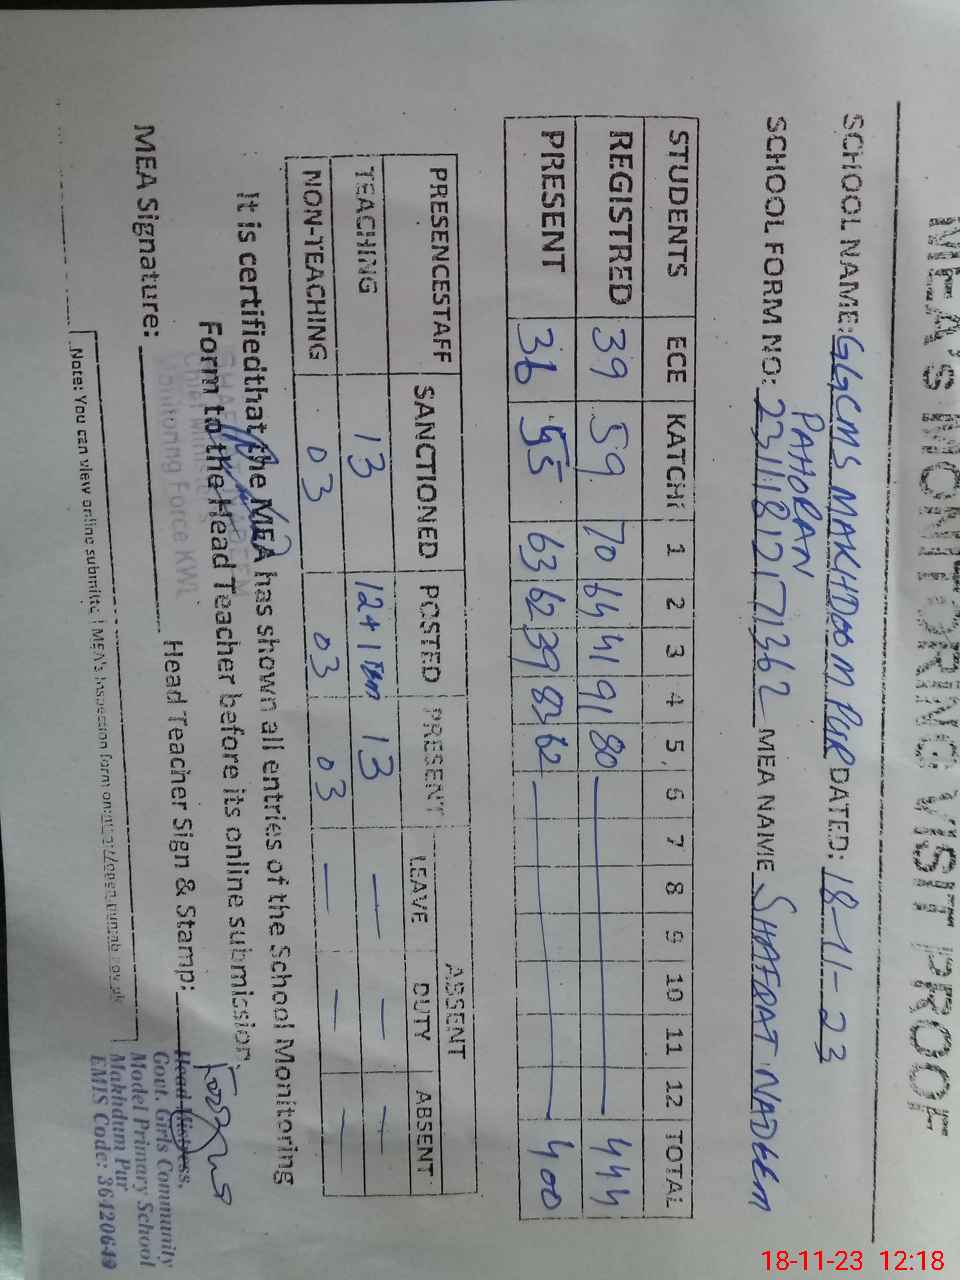 MEA'S MONITORING VISIT PROOF
SCHOOL NAME: GGCMS MAKHDOOM PUR DATED: 18-11-23
PAHORAN
SCHOOL FORM NO: 23111812171362 MEA NAME SHAFQAT NADEEM
STUDENTS ECE KATCHI 1 2 3 4 5 6 7 8 9 10 11 12 TOTAL
REGISTRED 39 59 70 64 41 91 80 — 444
PRESENT 36 55 63 62 39 83 62 — 400
PRESENCESTAFF SANCTIONED POSTED PRESENT ABSENT
LEAVE DUTY ABSENT
TEACHING 13 12+1 13 — — —
NON-TEACHING 03 03 03 — — —
It is certifiedthat the MEA has shown all entries of the School Monitoring
Form to the Head Teacher before its online submission.
Monitoring Force KWL
MEA Signature: Head Teacher Sign & Stamp:
Head Mistress,
Govt. Girls Community
Model Primary School
Makhdum Pur
EMIS Code: 36420649
Note: You can view online submitted MEA's Inspection form on:
18-11-23 12:18